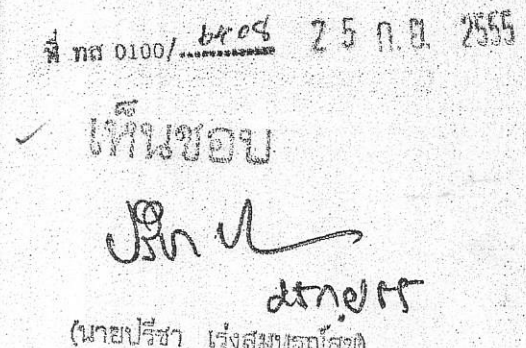 ที่ ทส 0100/ 6408 25 ก.ย. 2555
เห็นชอบ
(นายปรีชา เร่งสมบูรณ์สุข)